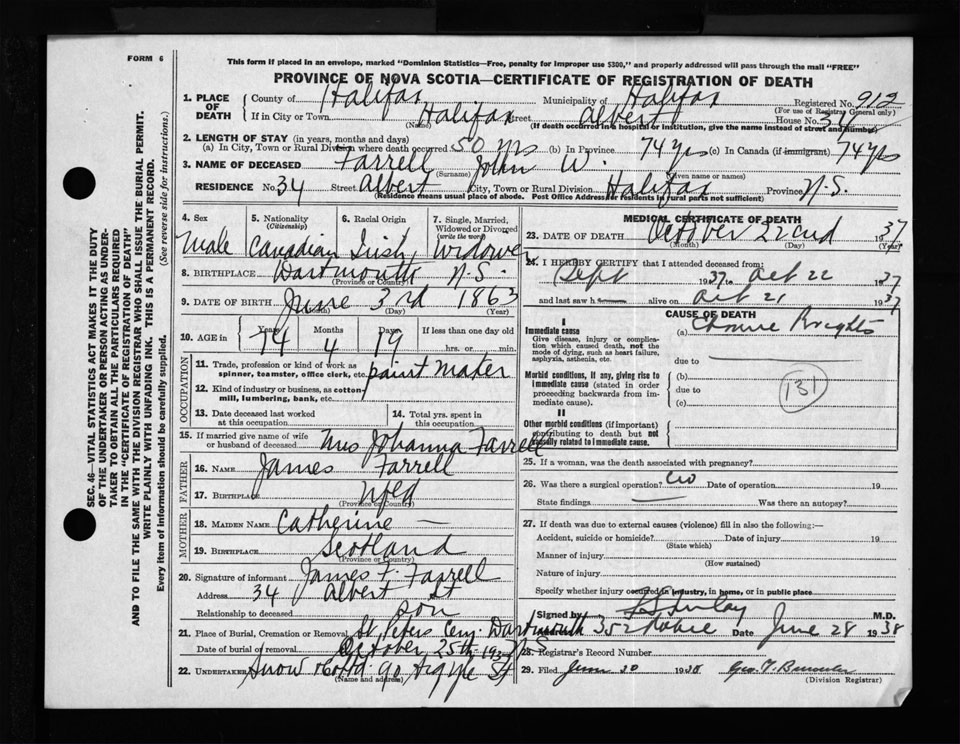 FORM 6
This form if placed in an envelope, marked "Dominion Statistics—Free, penalty for improper use $300," and properly addressed will pass through the mail "FREE"
PROVINCE OF NOVA SCOTIA—CERTIFICATE OF REGISTRATION OF DEATH
1. PLACE OF DEATH
County of Halifax Municipality of Halifax Registered No. 912
(For use of Registrar General only)
If in City or Town Halifax Street Albert House No. 34
(Name) (If death occurred in a hospital or institution, give the name instead of street and number)
2. LENGTH OF STAY (in years, months and days)
(a) In City, Town or Rural Division where death occurred 50 yrs (b) In Province 74 yrs (c) In Canada (if immigrant) 74 yrs
3. NAME OF DECEASED Farrell John W.
(Surname) (Given name or names)
RESIDENCE No. 34 Street Albert City, Town or Rural Division Halifax Province N.S.
(Residence means usual place of abode. Post Office Address for residents in rural parts not sufficient)
4. Sex Male
5. Nationality (Citizenship) Canadian
6. Racial Origin Irish
7. Single, Married, Widowed or Divorced (write the word) Widower
8. BIRTHPLACE Dartmouth N.S.
(Province or Country)
9. DATE OF BIRTH June 3rd 1863
(Month) (Day) (Year)
10. AGE in Years Months Days If less than one day old
74 4 19 hrs. or min.
OCCUPATION
11. Trade, profession or kind of work as spinner, teamster, office clerk, etc. paint maker
12. Kind of industry or business, as cotton-mill, lumbering, bank, etc.
13. Date deceased last worked at this occupation
14. Total yrs. spent in this occupation
15. If married give name of wife or husband of deceased Mrs Johanna Farrell
FATHER
16. NAME James Farrell
17. BIRTHPLACE Nfld
(Province or Country)
MOTHER
18. MAIDEN NAME Catherine —
19. BIRTHPLACE Scotland
(Province or Country)
20. Signature of informant James F. Farrell
Address 34 Albert St
Relationship to deceased son
21. Place of Burial, Cremation or Removal St. Peters Cem. Dartmouth N.S.
Date of burial or removal October 25th 1937
22. UNDERTAKER Snow & Co Ltd 90 Argyle St
(Name and address)
MEDICAL CERTIFICATE OF DEATH
23. DATE OF DEATH October 22nd 1937
(Month) (Day) (Year)
24. I HEREBY CERTIFY that I attended deceased from:
Sept 1937 Oct 22 1937
and last saw h alive on Oct 21 1937
CAUSE OF DEATH
I
Immediate cause
Give disease, injury or complication which caused death, not the mode of dying, such as heart failure, asphyxia, asthenia, etc.
(a) Chronic Brights
due to
Morbid conditions, if any, giving rise to immediate cause (stated in order proceeding backwards from immediate cause).
(b)
due to
(c)
131
II
Other morbid conditions (if important) contributing to death but not causally related to immediate cause.
25. If a woman, was the death associated with pregnancy?
26. Was there a surgical operation? no Date of operation 19
State findings Was there an autopsy?
27. If death was due to external causes (violence) fill in also the following:—
Accident, suicide or homicide? Date of injury 19
(State which)
Manner of injury
(How sustained)
Nature of injury
Specify whether injury occurred in industry, in home, or in public place
Signed by M.D.
352 Robie Date June 28 1938
28. Registrar's Record Number
29. Filed June 30 1938 Geo.
(Division Registrar)
SEC. 46—VITAL STATISTICS ACT MAKES IT THE DUTY
OF THE UNDERTAKER OR PERSON ACTING AS UNDER-
TAKER TO OBTAIN ALL THE PARTICULARS REQUIRED
IN THE "CERTIFICATE OF REGISTRATION OF DEATH"
AND TO FILE THE SAME WITH THE DIVISION REGISTRAR WHO SHALL ISSUE THE BURIAL PERMIT.
WRITE PLAINLY WITH UNFADING INK. THIS IS A PERMANENT RECORD.
Every item of information should be carefully supplied. (See reverse side for instructions.)